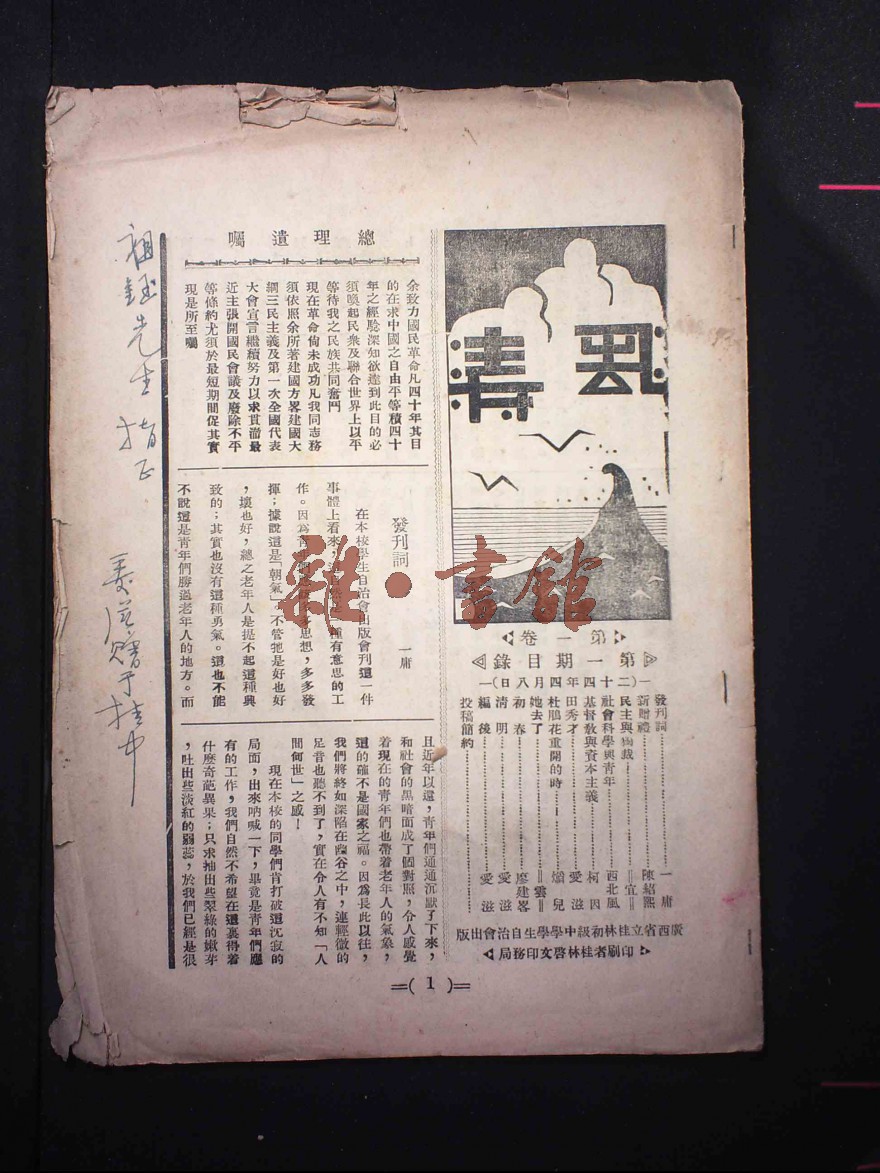 第一卷
第一期目錄
(二十四年四月八日)
發刊詞……一庸
新贈禮……陳紹熙
民主與獨裁……宣
社會科學與青年……西北風
基督敎與資本主義……柯因
田秀才……愛滋
杜鵑花重開的時……嬌兒
她去了……雲
初春……廖建畧
淸明……愛滋
編後……愛滋
投稿簡約
廣西省立桂林初級中學學生自治會出版
印刷者桂林啓文印務局
總理遺囑
余致力國民革命凡四十年其目
的在求中國之自由平等積四十
年之經驗深知欲達到此目的必
須喚起民衆及聯合世界上以平
等待我之民族共同奮鬥
現在革命尙未成功凡我同志務
須依照余所著建國方畧建國大
綱三民主義及第一次全國代表
大會宣言繼續努力以求貫澈最
近主張開國民會議及廢除不平
等條約尤須於最短期間促其實
現是所至囑
發刊詞
一庸
在本校學生自治會出版會刊這一件
事體上看來,種有意思的工
作。因爲靑年多思想,多多發
揮;據說這是「朝氣」,不管牠是好也好
,壞也好,總之老年人是提不起這種興
致的;其實也沒有這種勇氣。這也不能
不說這是靑年們勝過老年人的地方。而
且近年以還,靑年們通通沉默了下來,
和社會的黑暗面成了個對照,令人感覺
着現在的靑年們也帶着老年人的氣象,
這的確不是國家之福。因爲長此以往,
我們將終如深陷在幽谷之中,連輕微的
足音也聽不到了,實在令人有不知「人
間何世」之感!
現在本校的同學們肯打破這沉寂的
局面,出來吶喊一下,畢竟是靑年們應
有的工作,我們自然不希望在這裏得着
什麽奇葩異果;只求抽出些翠綠的嫩芽
,吐出些淡紅的弱蕊,於我們已經是很
=( 1 )=
先生指正
愛滋贈于桂中
雜·書館